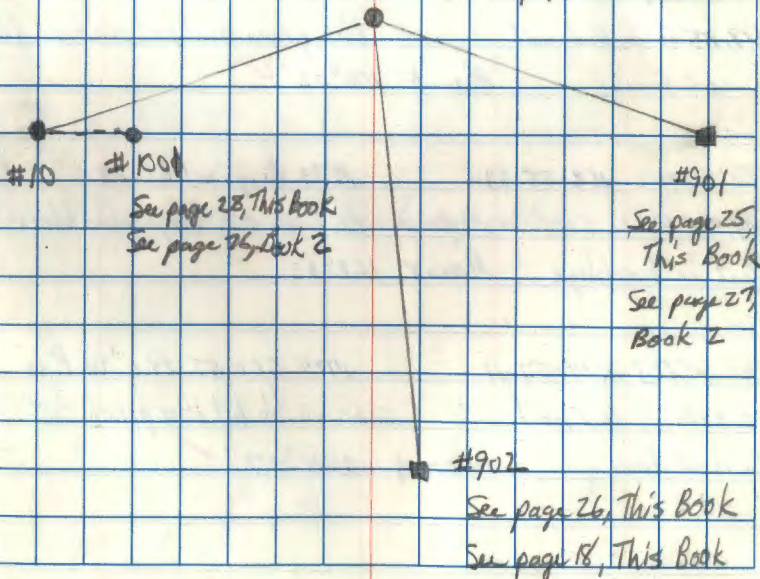 #10
#1001
See page 28, This Book
See page 26, Book 2
#901
See page 25,
This Book
See page 27,
Book 2
#902
See page 26, This Book
See page 18, This Book